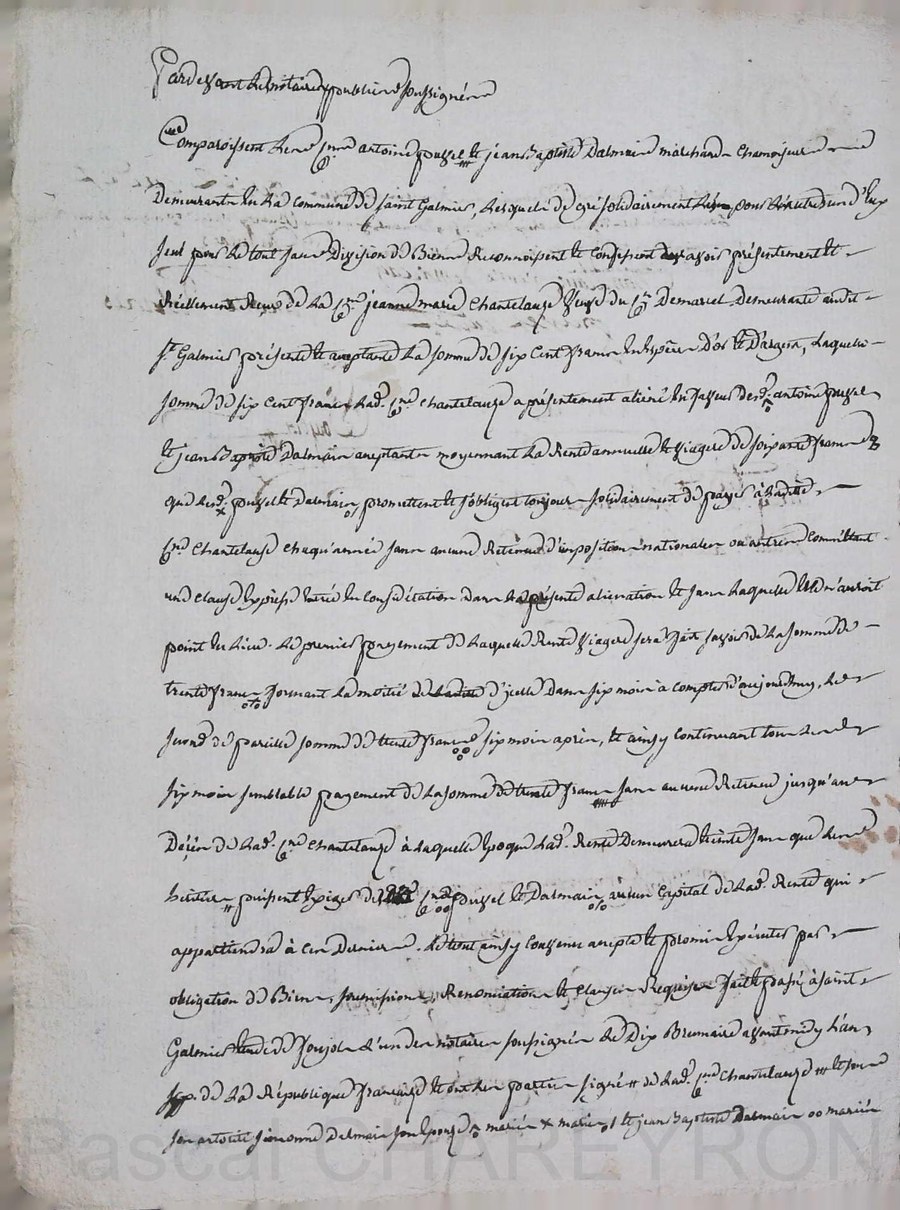 Pardevant les notaires publics soussignés
Comparoissent les Cns antoine puzel et jean Baptiste Dalmain marchands chamoiseurs
Demeurants en la commune de saint Galmier, lesquels de gré solidairement l'un pour l'autre d'eux
seul pour le tout sans Division de Biens Reconnoissent et Confessent avoir présentement et
réellement Reçu de la Cne jeanne marie Chantelauze veuve du Cn Demarcel Demeurante audit
St Galmier présente et acceptante la somme de six cent francs en espèces D'or et D'argent, laquelle
somme de six cent francs lad. Cne Chantelauze a présentement aliéné en faveur desd. antoine puzel
et jean Baptiste Dalmain acceptants moyennant la Rente annuelle et viagère de soixante francs
que lesd. puzel et Dalmain promettent et s'obligent toujours solidairement de payer à ladite
Cne Chantelauze chaqu'année sans aucune Retenue d'imposition nationales ou autres Comm'étant
une clause expresse entrée en considération dans la présente aliénation et sans laquelle elle n'auroit
point eu lieu. Le premier payement de laquelle Rente viagère sera fait savoir de la somme de
trente francs formant la moitié de d'jcelle Dans six mois à compter d'aujourdhuy, le
second de pareille somme de trente francs six mois après, et ainsy continuant tous les
six mois semblable payement de la somme de trente francs sans aucune Retenue jusqu'au
Décès de lad. Cne Chantelauze à laquelle époque lad. Rente Demeurera éteinte sans que les
héritiers puissent exiger des Cns puzel et Dalmain aucun Capital de lad. Rente qui
appartiendra à ces Derniers. Le tout ainsy convenu accepté et promis exécuter par
obligation de Biens, soumissions, Renonciations et Clauses Requises fait et passé à saint
Galmier étude de l'un des notaires soussignés le Dix Brumaire avant midy l'an
sept de la République française et ont les parties signé de lad. Cne Chantelauze et sous
son autorité simonne Delmain son épouse mariés mariés et jean Baptiste Dalmain mariés